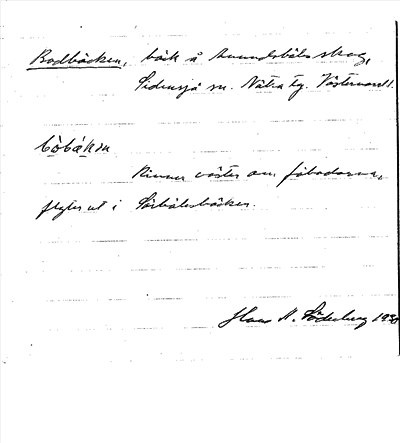 Bodbäcken, bäck å Anundsböles skog,
Sidensjö sn. Nätra tg. Västernorrl.
Rinner väster om fäbodarna,
flyter ut i Sörbölesbäcken.
Hans N. Söderberg 1930